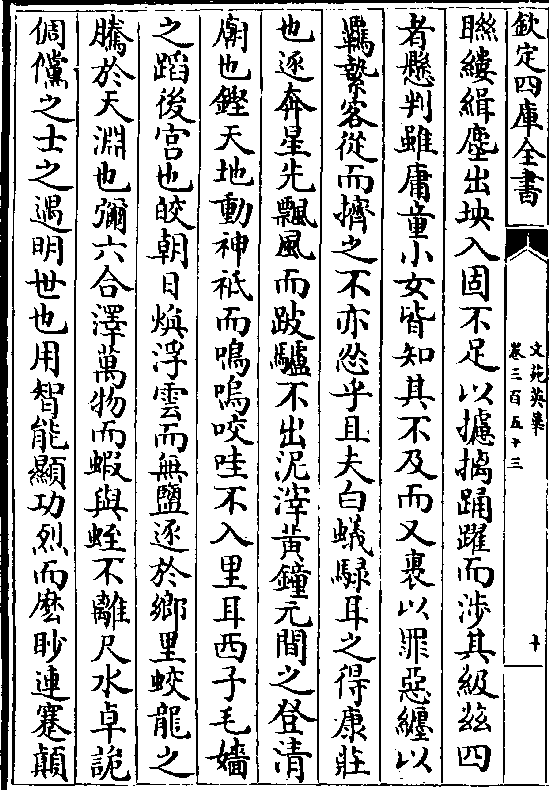 欽定四庫全書
文苑英華
卷三百五十三
十
聮縷緝塵出坱入固不足以攄摛踊躍而涉其級茲四
者懸判雖庸童小女皆知其不及而又裹以罪惡纒以
羈縶客從而擠之不亦忍乎且夫白蟻騄耳之得康莊
也逐奔星先飄風而跛驢不出泥滓黄鐘元間之登清
廟也鏗天地動神祇而嗚嗚咬哇不入里耳西子毛嬙
之蹈後宫也皎朝日煥浮雲而無鹽逐於鄉里蛟龍之
騰於天淵也彌六合澤萬物而蝦與蛭不離尺水卓詭
倜儻之士之遇明世也用智能顯功烈而麽眇連蹇顛